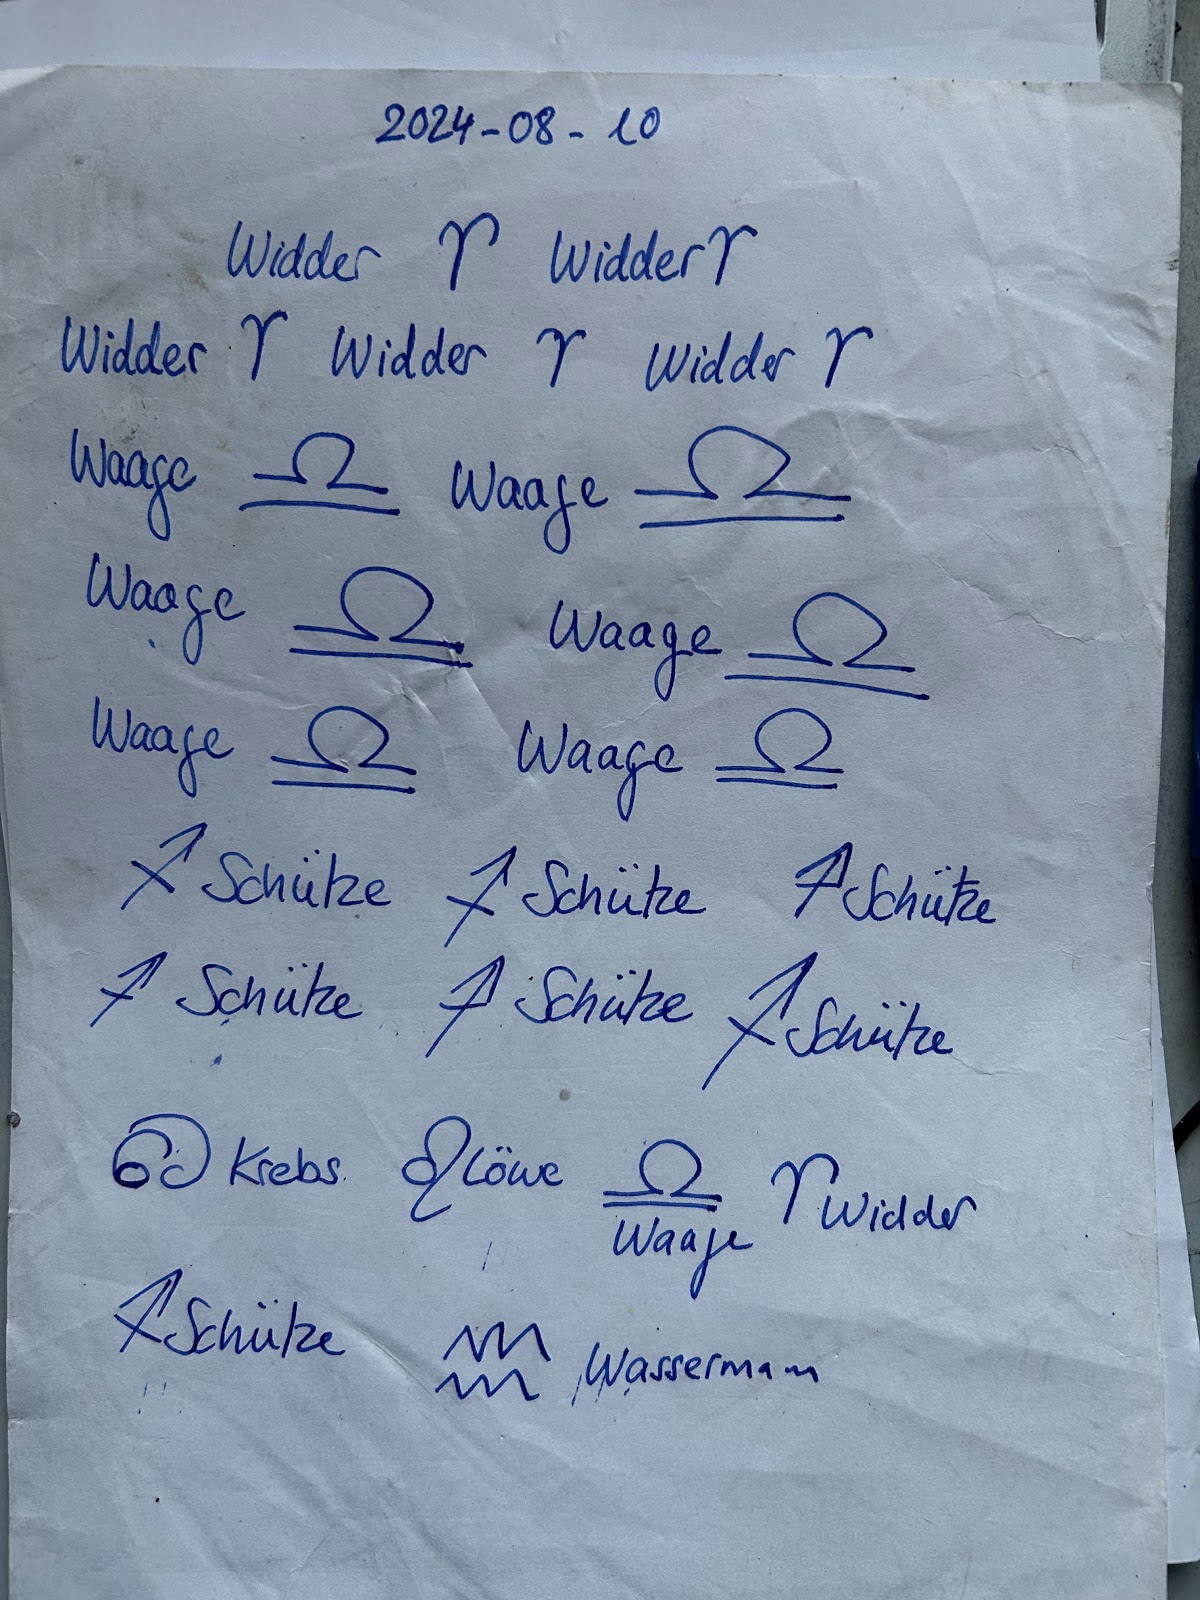 2024-08-10
Widder ♈ Widder ♈
Widder ♈ Widder ♈ Widder ♈
Waage ♎ Waage ♎
Waage ♎ Waage ♎
Waage ♎ Waage ♎
♐ Schütze ♐ Schütze ♐ Schütze
♐ Schütze ♐ Schütze ♐ Schütze
♋ Krebs ♌ Löwe ♎ Waage ♈ Widder
♐ Schütze ♒ Wassermann